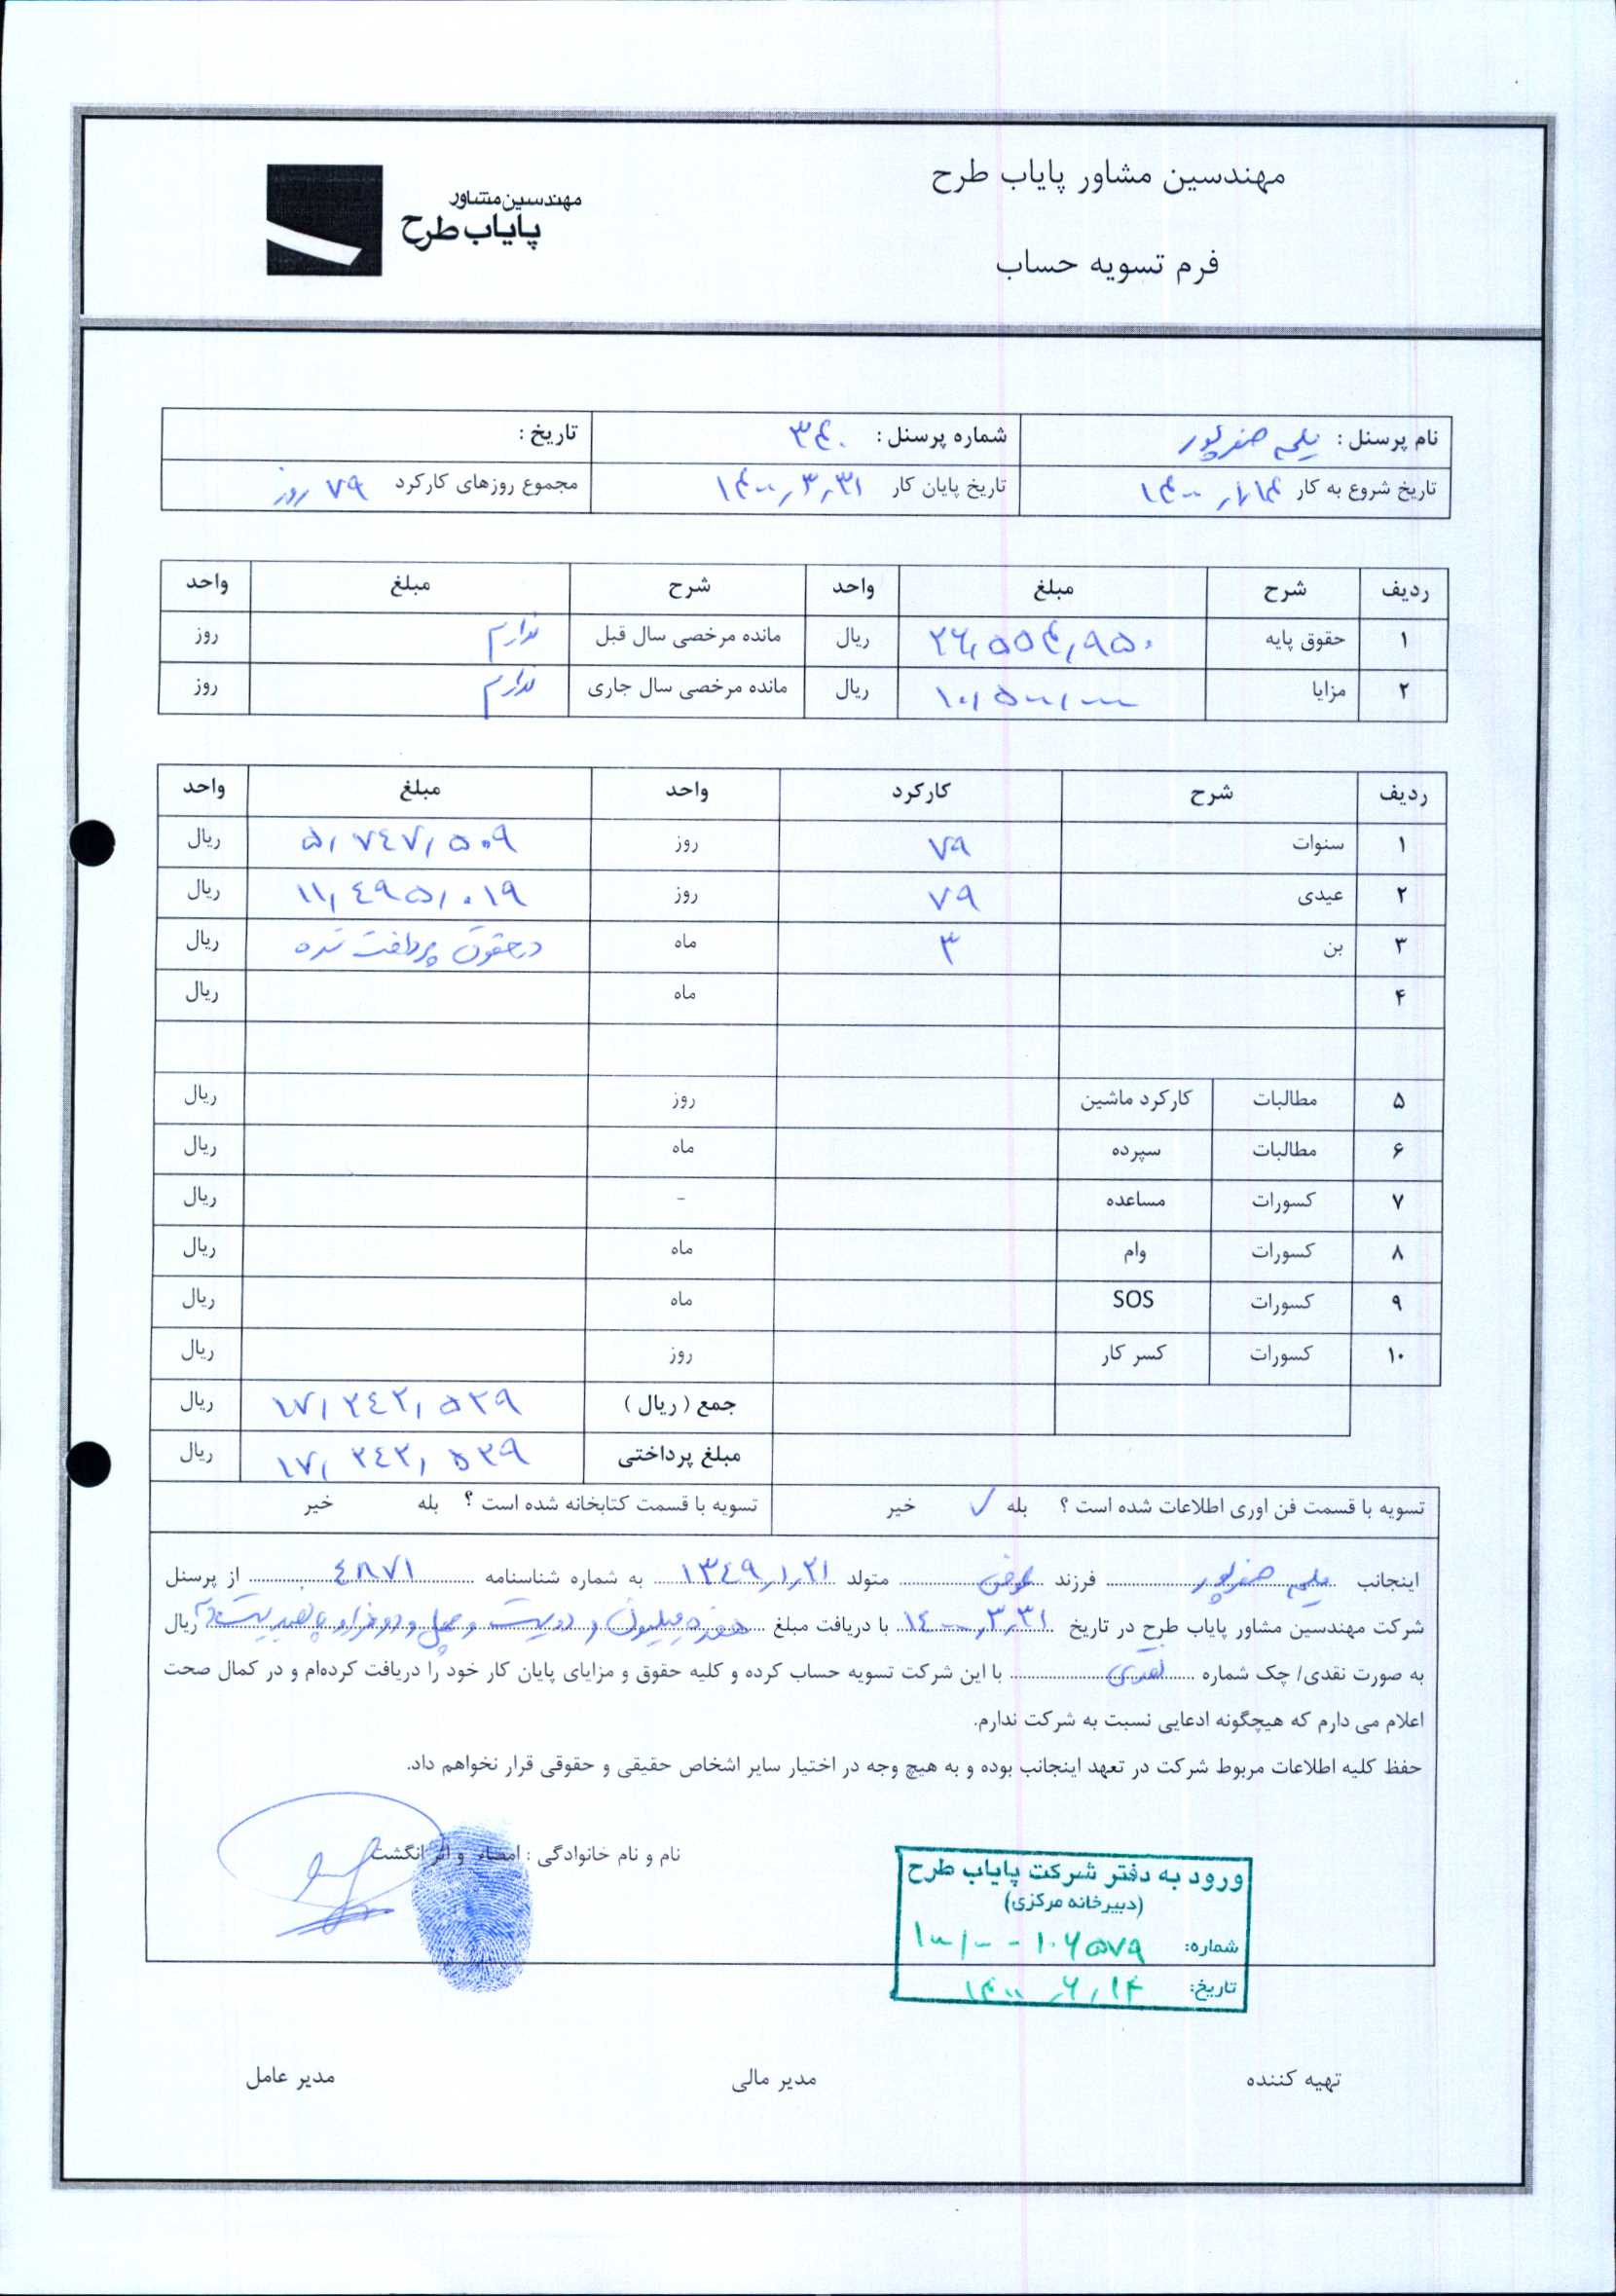 مهندسین مشاور پایاب طرح
مهندسین مشاور
پایاب طرح
فرم تسویه حساب
نام پرسنل : صفرپور شماره پرسنل : ۳۴۰ تاریخ :
تاریخ شروع به کار ۱۴۰۰٫۱٫۱۴ تاریخ پایان کار ۱۴۰۰٫۳٫۳۱ مجموع روزهای کارکرد ۷۹ روز
ردیف شرح مبلغ واحد شرح مبلغ واحد
۱ حقوق پایه ۲۶,۵۵۴,۹۵۰ ریال مانده مرخصی سال قبل ندارم روز
۲ مزایا ۱۰,۵۰۰,۰۰۰ ریال مانده مرخصی سال جاری ندارم روز
ردیف شرح کارکرد واحد مبلغ واحد
۱ سنوات ۷۹ روز ۵,۷۴۷,۵۰۹ ریال
۲ عیدی ۷۹ روز ۱۱,۴۹۵,۰۱۹ ریال
۳ بن ۳ ماه درحقوق پرداخت شده ریال
۴ ماه ریال
۵ مطالبات کارکرد ماشین روز ریال
۶ مطالبات سپرده ماه ریال
۷ کسورات مساعده - ریال
۸ کسورات وام ماه ریال
۹ کسورات SOS ماه ریال
۱۰ کسورات کسر کار روز ریال
جمع ( ریال ) ۱۷,۲۴۲,۵۲۹ ریال
مبلغ پرداختی ۱۷,۲۴۲,۵۲۹ ریال
تسویه با قسمت فن اوری اطلاعات شده است ؟ بله ✓ خیر تسویه با قسمت کتابخانه شده است ؟ بله خیر
اینجانب صفرپور فرزند عوض متولد ۱۳۴۹٫۱٫۲۱ به شماره شناسنامه ۴۸۷۱ از پرسنل
شرکت مهندسین مشاور پایاب طرح در تاریخ ۱۴۰۰٫۳٫۳۱ با دریافت مبلغ هفده میلیون و دویست و چهل و دو هزار و پانصد و بیست و نه ریال
به صورت نقدی/ چک شماره نقدی با این شرکت تسویه حساب کرده و کلیه حقوق و مزایای پایان کار خود را دریافت کرده‌ام و در کمال صحت
اعلام می دارم که هیچگونه ادعایی نسبت به شرکت ندارم.
حفظ کلیه اطلاعات مربوط شرکت در تعهد اینجانب بوده و به هیچ وجه در اختیار سایر اشخاص حقیقی و حقوقی قرار نخواهم داد.
نام و نام خانوادگی : امضاء و اثر انگشت
ورود به دفتر شرکت پایاب طرح
(دبیرخانه مرکزی)
شماره: ۱۰۰/۰۰-۱۰۶۵۷۹
تاریخ: ۱۴۰۰٫۶٫۱۴
تهیه کننده مدیر مالی مدیر عامل